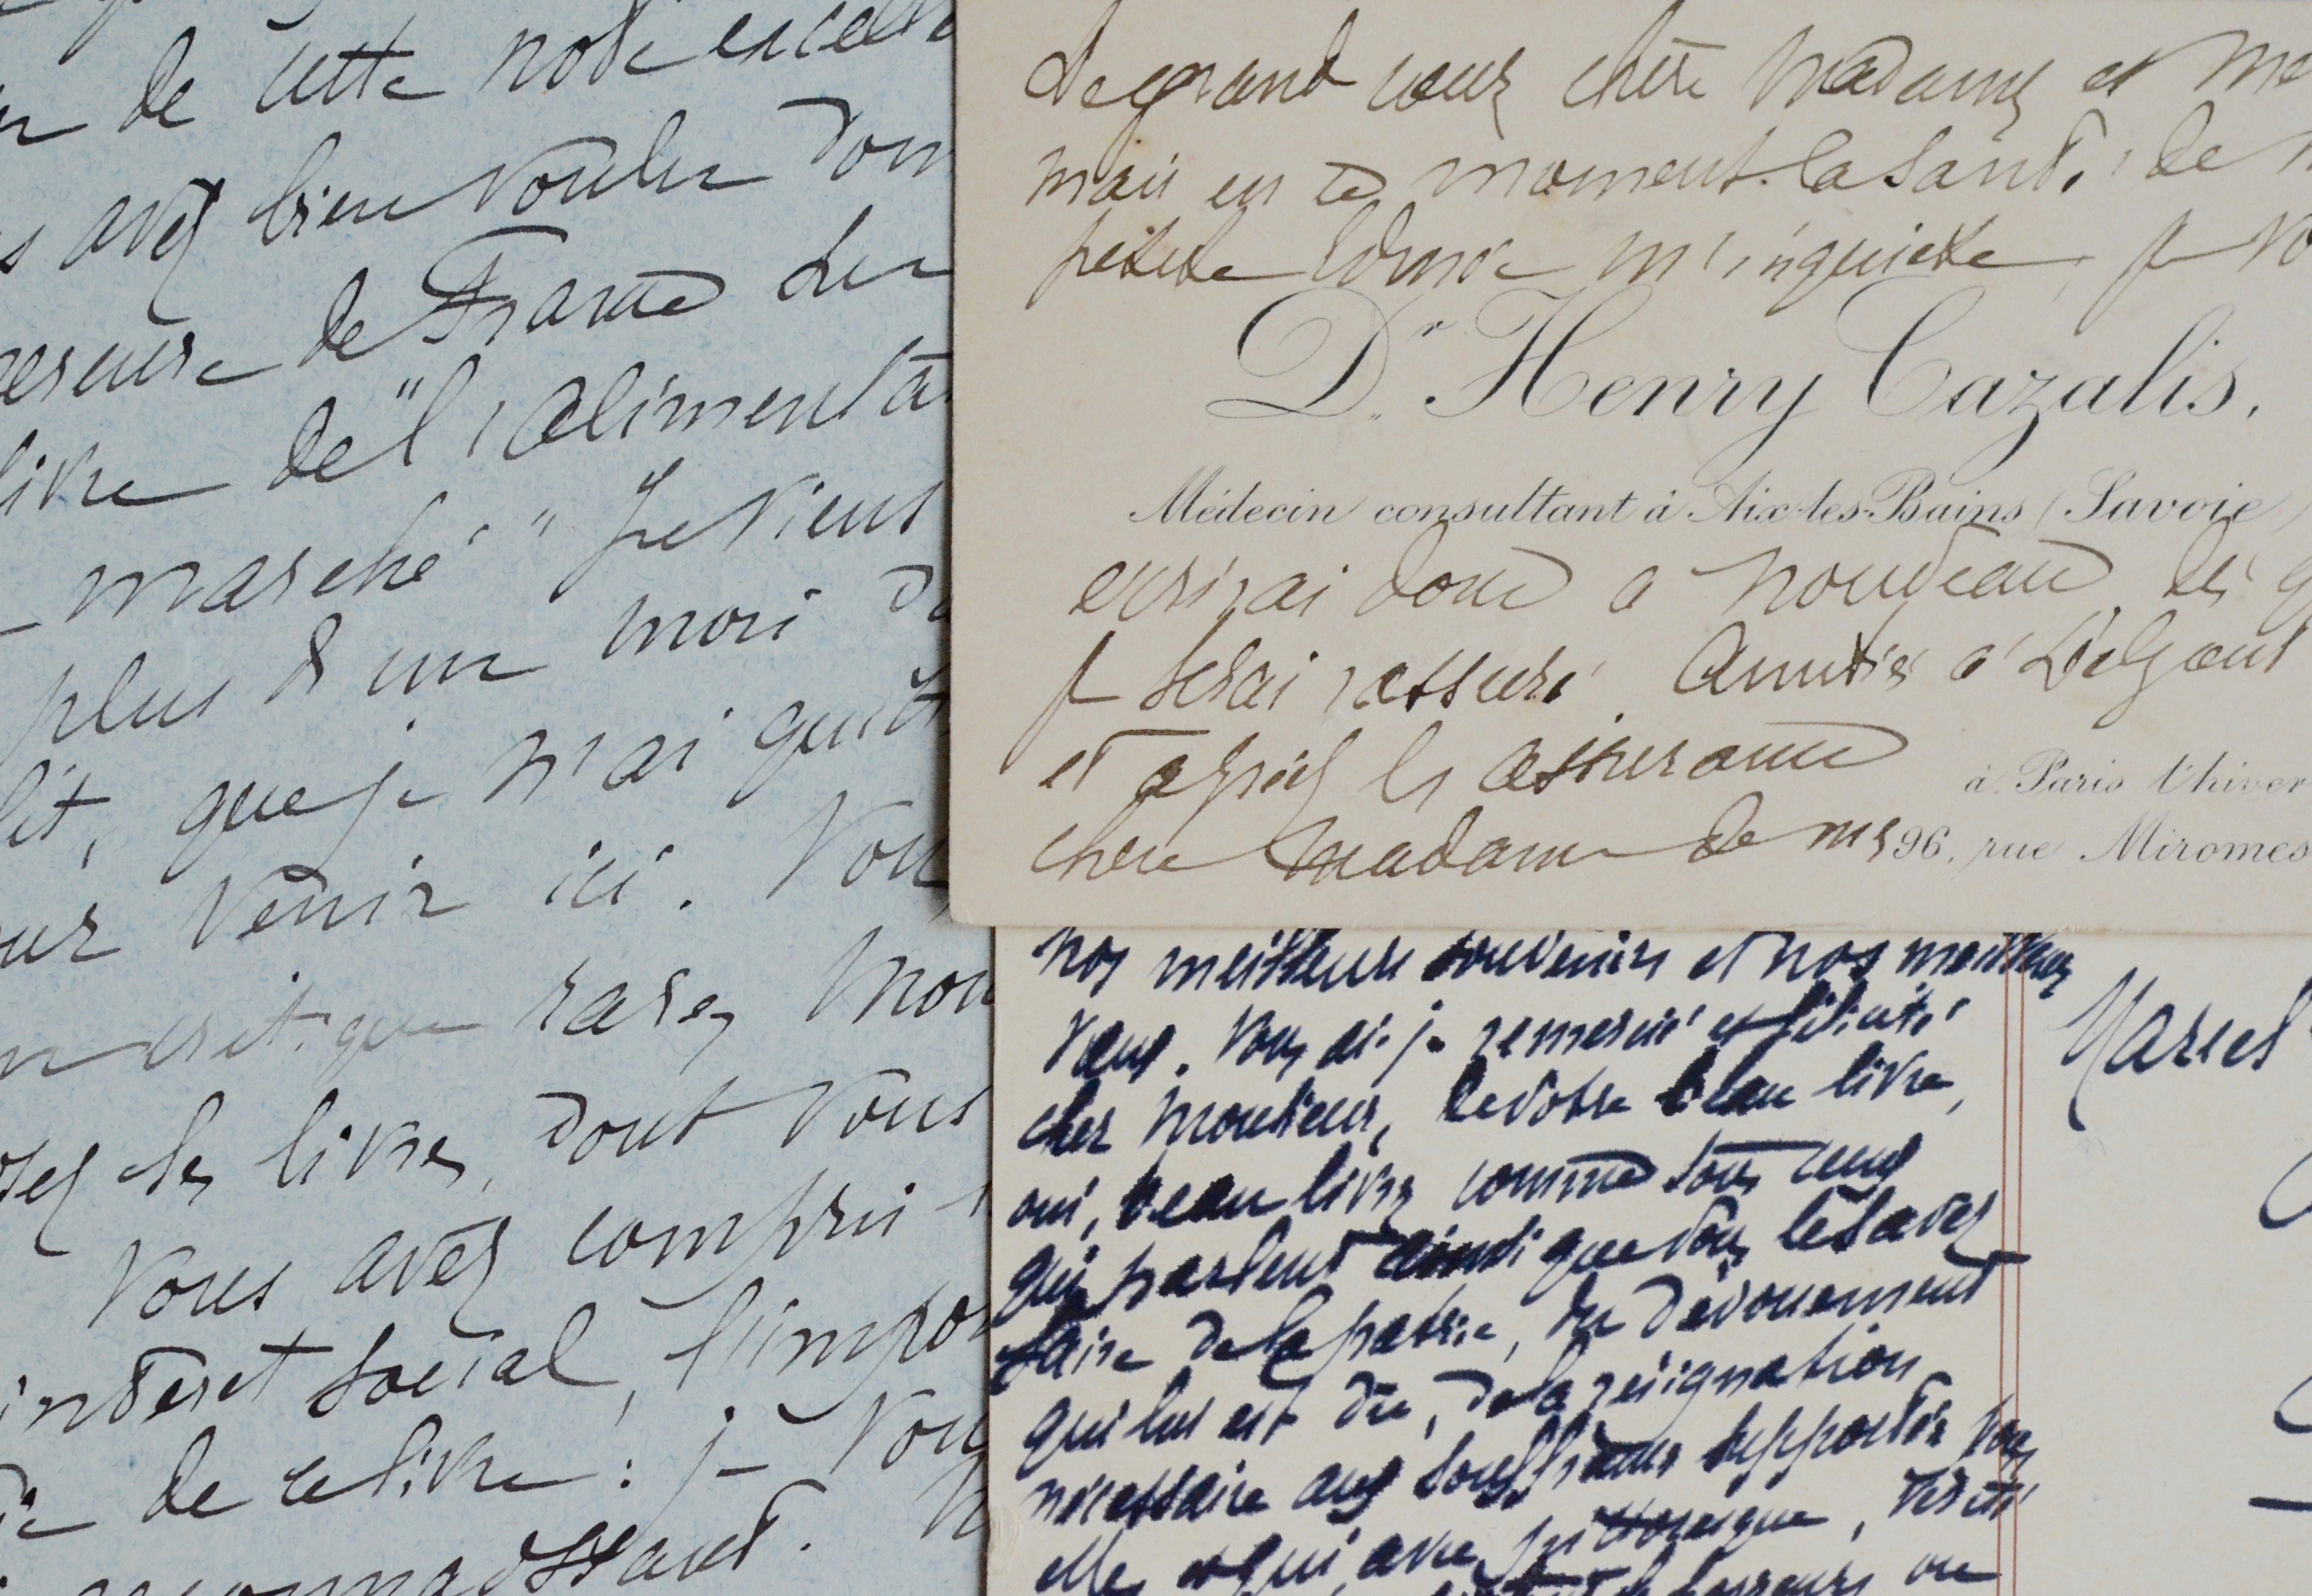 de cette note
avez bien voulu
de France du
livre de "l'alimenta
marché" Je viens
plus d'un mois
lit, que je n'ai quitt
venir ici. Vou
critique rares, mon
les livres, dont vous
Vous avez compris
interet social, l'impor
de ce livre : je vou
reconnaissant.
De grand cœur chère Madame et
mais en ce moment la santé de
petite m'inquiete, je vo
Dr. Henry Cazalis,
Médecin consultant à Aix-les-Bains (Savoie)
ecrirai donc a nouveau des q
je serai rassuré. Amitiés a
et agréez les assurance
chere madame de mes
à Paris l'hiver
96, rue Miromes
nos meilleurs souvenirs et nos meilleurs
vœux. Vous ai-je remercié et félicité
cher Monsieur, de votre beau livre,
oui, beau livre comme tous ceux
qui parlent ainsi que vous le savez
faire de la patrie, du dévouement
qui lui est dû, de la résignation
nécessaire aux souffrances supportées pour
elle, et qui avec
Marcel